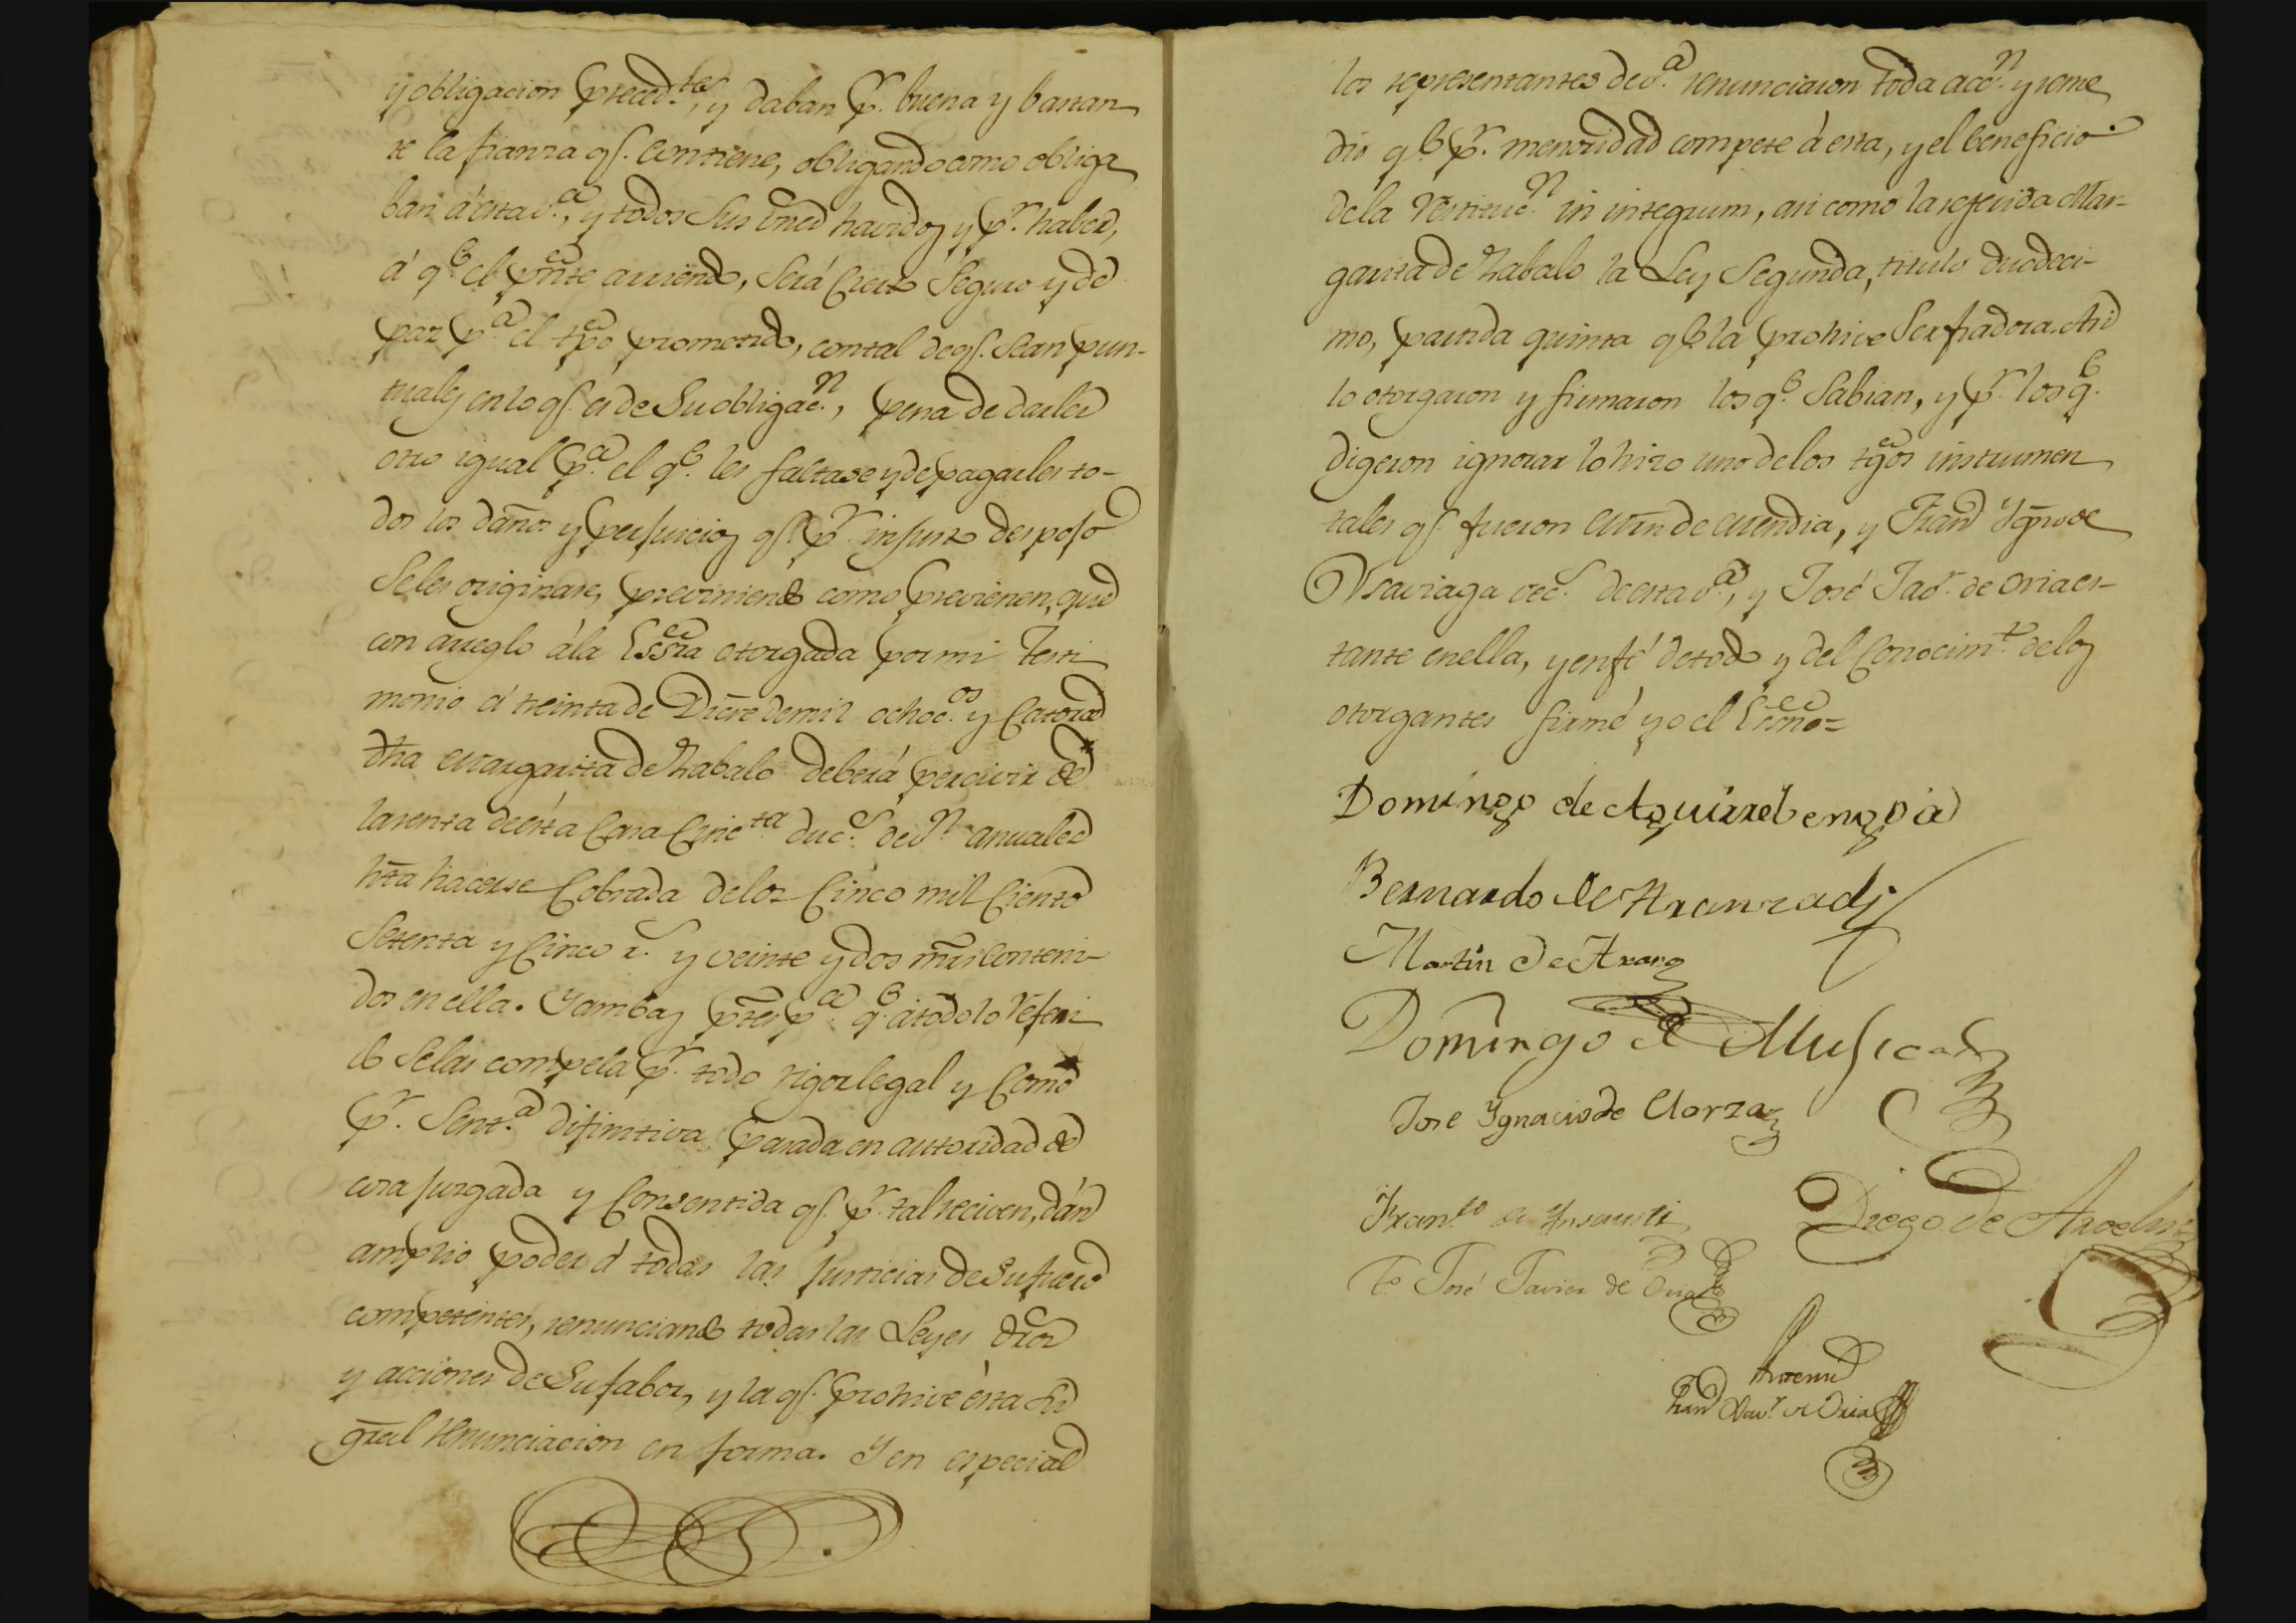 y obligacion preced.tes, y daban p.r buena y bastan
te la fianza q.e contiene, obligando como obliga
ban á esta v.a, y todos sus vnes havidos y p.r haber,
á q.e el pnte arriendo, será cierto seguro y de
paz p.a el tpo prometido, con tal de q.e sean pun-
tuales en lo q.e es de su obligac.n, pena de darles
otro igual p.a el q.e les faltase y de pagarles to-
dos los daños y perjuicios q.e p.r injusto despojo
se les originare, previniendo como previenen, que
con arreglo á la Essra otorgada por mi testi
monio á treinta de Dicre de mil ochoc.os y catorce
dha Margarita de Zabalo deberá percivir de
la renta de ésta Casa Cinc.ta duc.s de v.n anuales
hta hacerse cobrada de los cinco mil ciento
setenta y cinco r.s y veinte y dos mrs conteni-
dos en ella. Y ambas ptes p.a q.e á todo lo referi
do se las compela p.r todo rigor legal y como
p.r Sent.a difinitiva pasada en autoridad de
cosa juzgada y consentida q.e p.r tal reciven, dán
amplio poder á todas las Justicias de su fuero
competentes, renunciando todas las Leyes dros
y acciones de su fabor, y la q.e prohive ésta
gral renunciacion en forma. Y en especial
los representantes de v.a renunciaron toda acc.n y reme
dio q.e p.r menoridad compete á esta, y el beneficio
de la restituc.n in integrum, asi como la referida Mar-
garita de Zabalo la Ley segunda, titulo duodeci-
mo, partida quinta q.e la prohive ser fiadora. Asi
lo otorgaron y firmaron los q.e sabian, y p.r los q.e
digeron ignorar lo hizo uno de los tgos instrumen
tales q.e fueron Mrn de Mendia, y Fran.co Ygn.o de
Vsaviaga vec.s de esta v.a, y José Jav.r de Oria es-
tante en ella, y en fé de todo y del conocim.to de los
otorgantes firmé yo el Essno=
Domingo de Aguirrebengoa
Bernardo de Aranzadi
Martin de Arana
Domingo de Mugica
Jose Ygnacio de Aorza
Fran.co de Ynsausti
Diego de
T.o José Javier de Oria
Antemi
Fran.co Xav.r de Oria